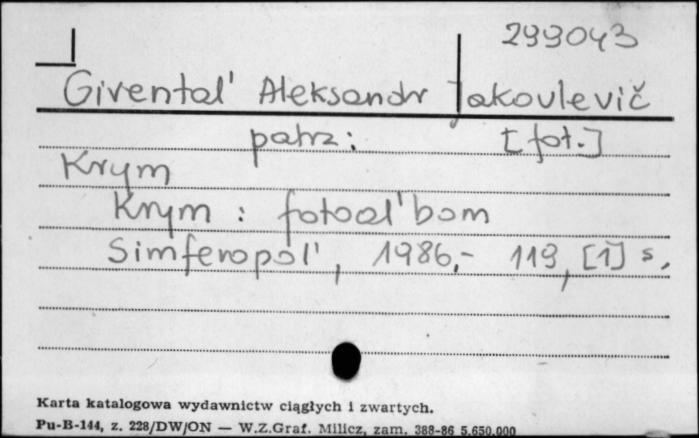 299043
Givental' Aleksandr Jakovlevič
patrz: [fot.]
Krym
Krym : fotoal'bom
Simferopol', 1986,- 119, [1] s.
Karta katalogowa wydawnictw ciągłych i zwartych.
Pu-B-144, z. 228/DW/ON — W.Z.Graf. Milicz, zam. 388-86 5.650.000